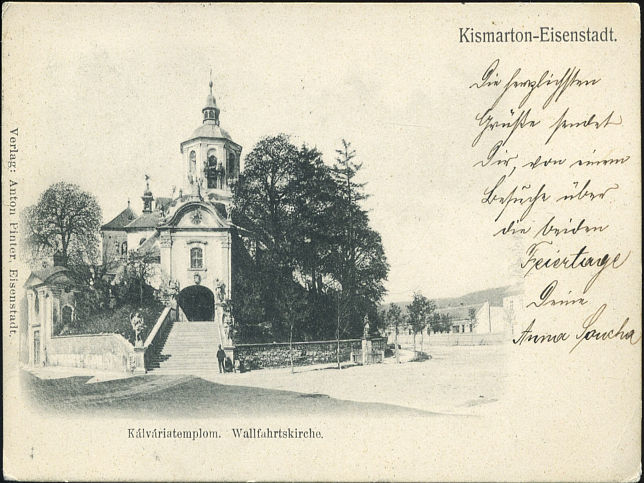 Kismarton-Eisenstadt.
Die herzlichsten
Grüße sendet
Dir, von einem
Besuche über
die beiden
Feiertage
Deine
Anna
Verlag: Anton Pinter, Eisenstadt.
Kálváriatemplom. Wallfahrtskirche.